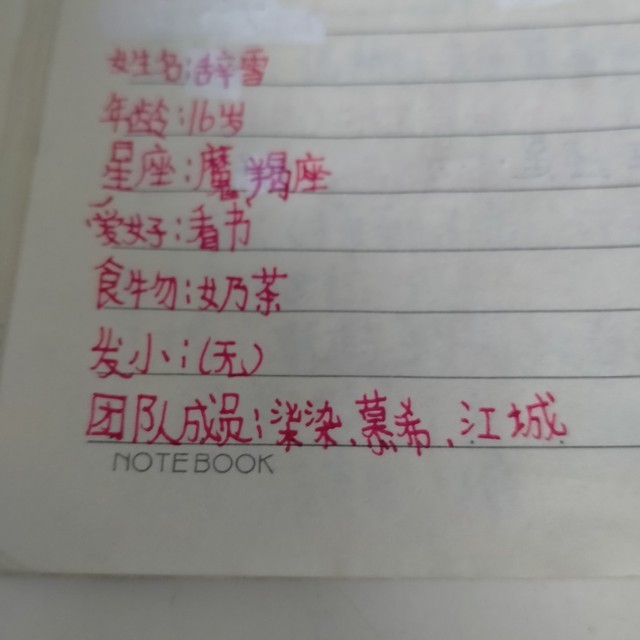 姓名:辞雪
年龄:16岁
星座:魔羯座
爱好:看书
食物:奶茶
发小:(无)
团队成员:染染、慕希、江城
NOTEBOOK